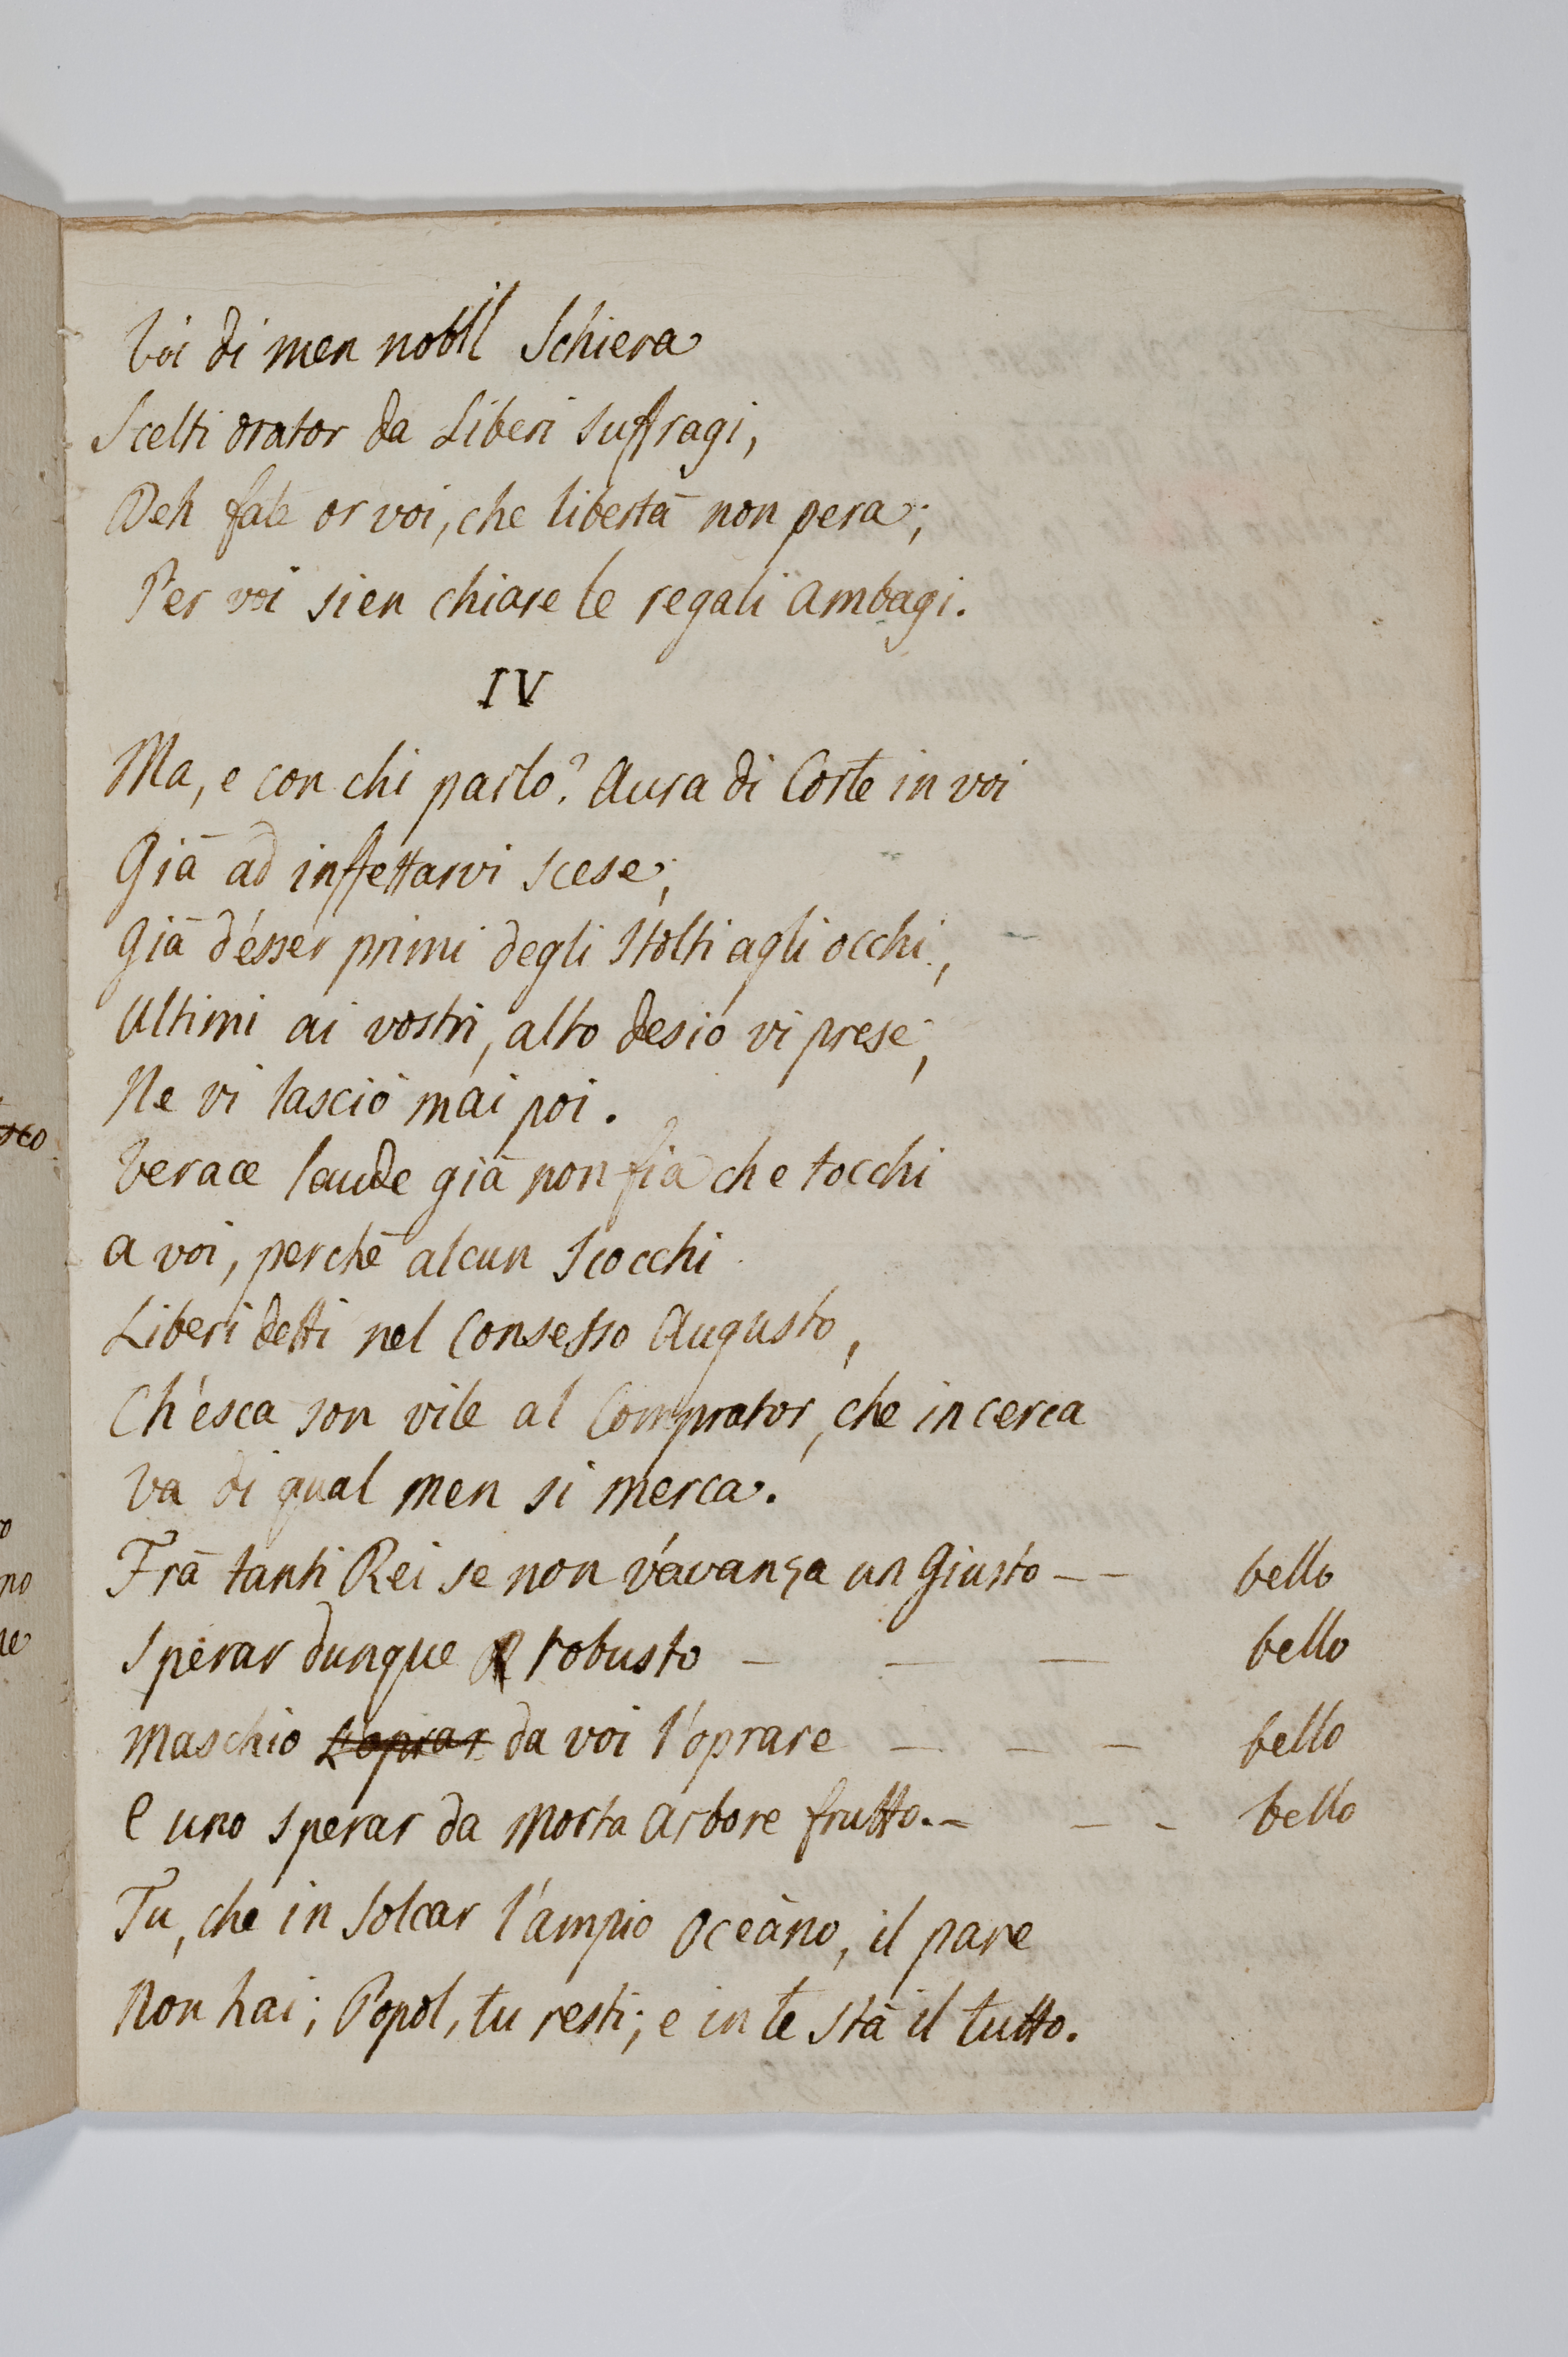 Voi di men nobil Schiera
Scelti orator da Liberi suffragi,
Deh fate or voi, che libertà non pera;
Per voi sien chiare le regali ambagi.
IV
Ma, e con chi parlo? Aura di Corte in voi
Già ad inffettarvi scese;
Già d'esser primi degli Stolti agli occhi,
Ultimi ai vostri, alto desio vi prese;
Ne vi lasciò mai poi.
Verace laude già non fia che tocchi
a voi, perchè alcun scocchi
Liberi detti nel Consesso Augusto,
Ch'esca son vile al Comprator, che in cerca
Va di qual men si merca.
Frà tanti Rei se non v'avanza un Giusto -- bello
Sperar dunque robusto - - - bello
Maschio L'oprar da voi l'oprare - - - bello
E uno sperar da Morta Arbore frutto. - - - bello
Tu, che in solcar l'ampio Oceàno, il pare
Non hai; Popol, tu resti; e in te stà il tutto.
sco
no